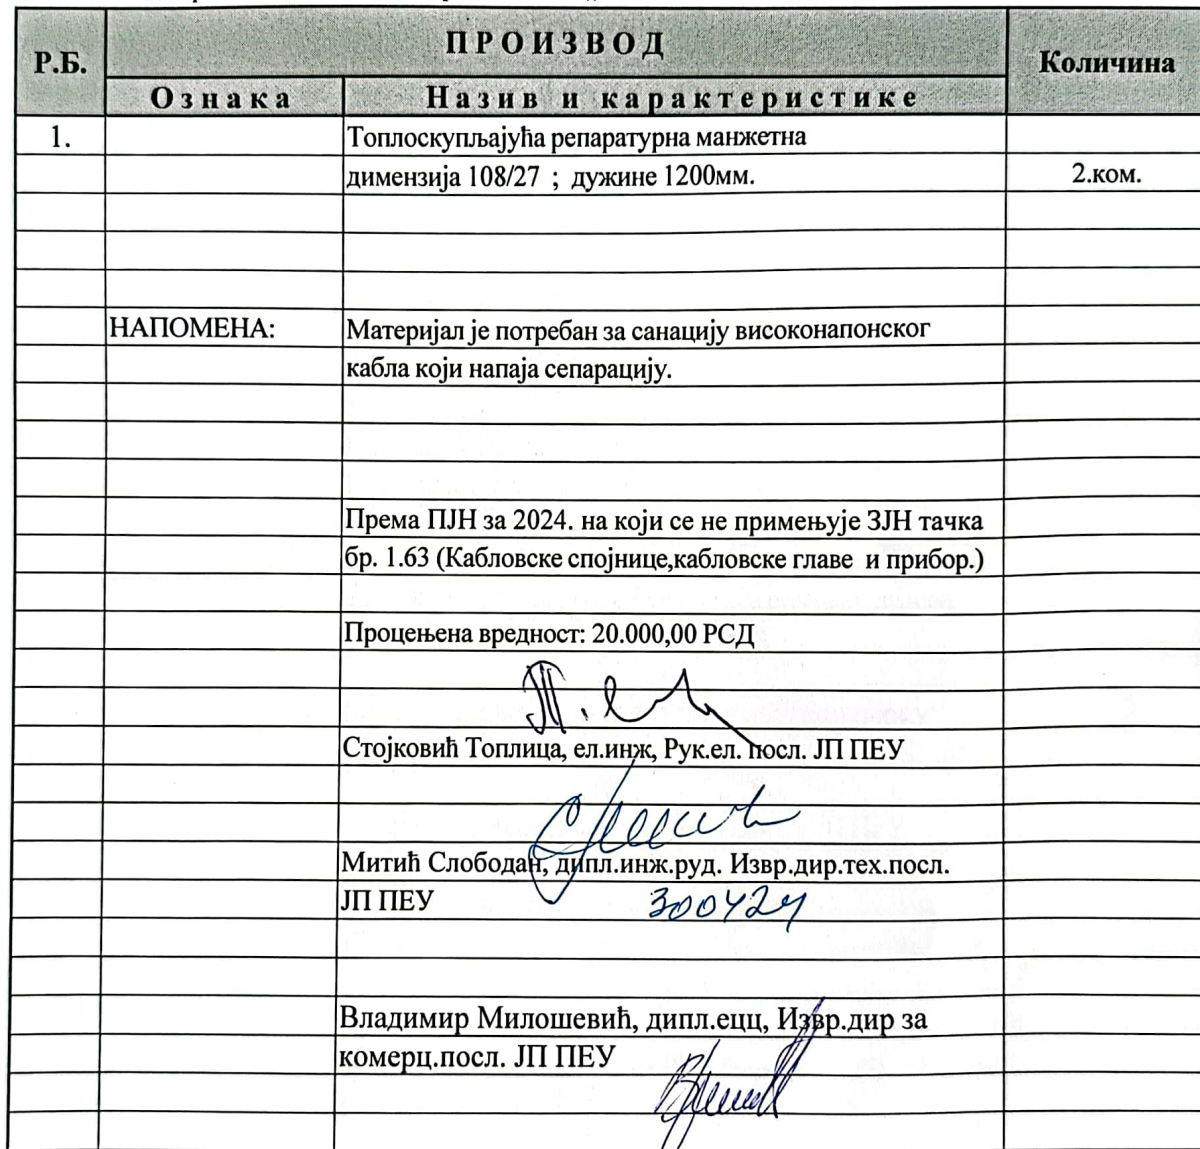 Р.Б.
ПРОИЗВОД
Количина
Ознака
Назив и карактеристике
1.
Топлоскупљајућа репаратурна манжетна
димензија 108/27 ; дужине 1200мм.
2.ком.
НАПОМЕНА:
Материјал је потребан за санацију високонапонског
кабла који напаја сепарацију.
Према ПЈН за 2024. на који се не примењује ЗЈН тачка
бр. 1.63 (Кабловске спојнице,кабловске главе и прибор.)
Процењена вредност: 20.000,00 РСД
Стојковић Топлица, ел.инж, Рук.ел. посл. ЈП ПЕУ
Митић Слободан, дипл.инж.руд. Извр.дир.тех.посл.
ЈП ПЕУ
300424
Владимир Милошевић, дипл.ецц, Извр.дир за
комерц.посл. ЈП ПЕУ